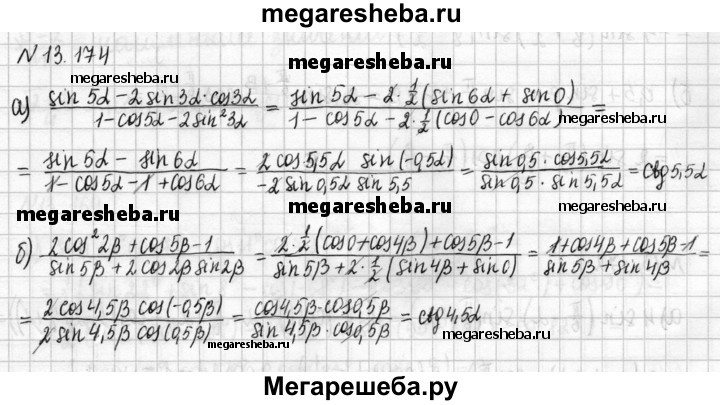 megaresheba.ru
N 13.174
megaresheba.ru megaresheba.ru
а) (sin 5α − 2 sin 3α · cos 3α)/(1 − cos 5α − 2 sin² 3α) = (sin 5α − 2 · 1/2 (sin 6α + sin 0))/(1 − cos 5α − 2 · 1/2 (cos 0 − cos 6α)) =
megaresheba.ru
= (sin 6α − sin 6α)/(1 − cos 5α − 1 + cos 6α) = (2 cos 5,5α sin(−0,5α))/(−2 sin 0,5α sin 5,5) = (sin 0,5 · cos 5,5α)/(sin 0,5 · sin 5,5α) = ctg 5,5α
megaresheba.ru
б) (2 cos² 2β + cos 5β − 1)/(sin 5β + 2 cos 2β sin 2β) = (2 · 1/2 (cos 0 + cos 4β) + cos 5β − 1)/(sin 5β + 2 · 1/2 (sin 4β + sin 0)) = (1 + cos 4β + cos 5β − 1)/(sin 5β + sin 4β) =
megaresheba.ru
= (2 cos 4,5β cos(−0,5β))/(2 sin 4,5β cos(0,5β)) = (cos 4,5β · cos 0,5β)/(sin 4,5β · cos 0,5β) = ctg 4,5α
megaresheba.ru megaresheba.ru
Мегарешеба.ру